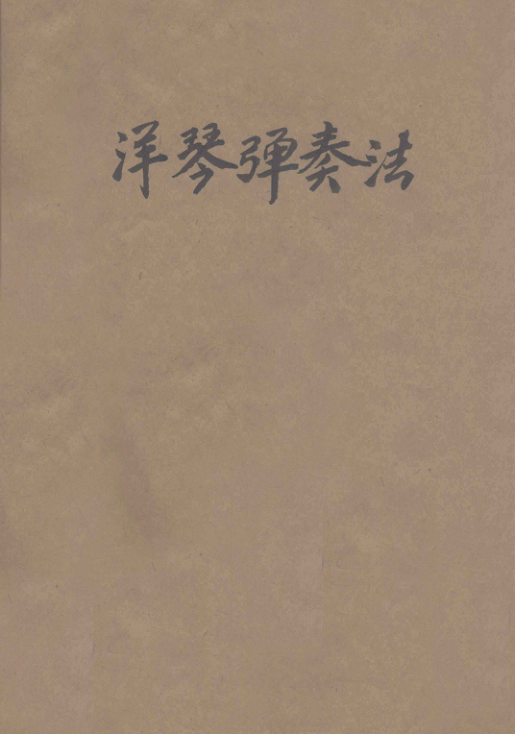 洋琴弹奏法